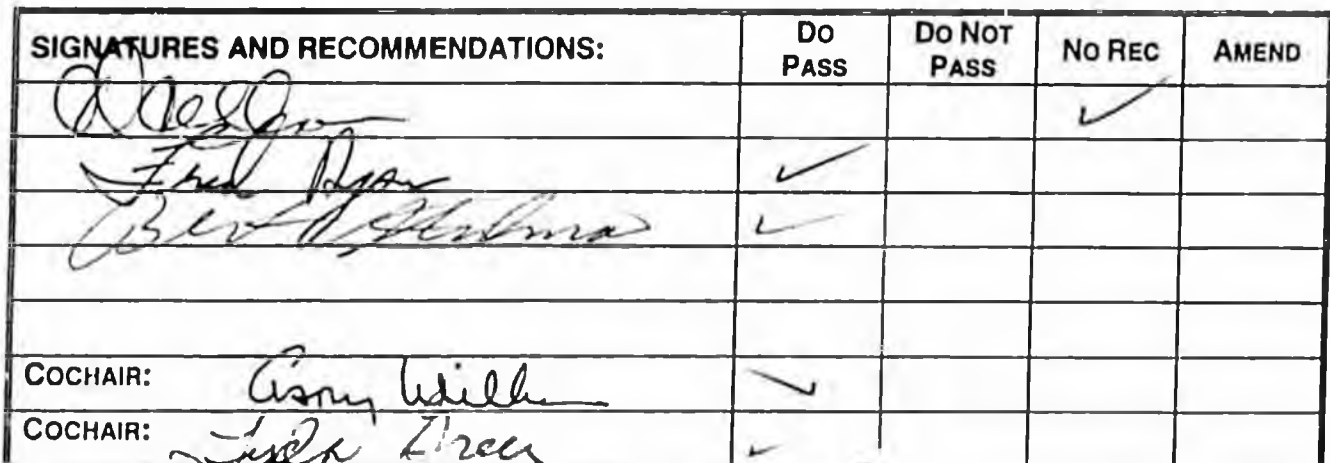 SIGNATURES AND RECOMMENDATIONS: DO PASS DO NOT PASS NO REC AMEND
✓
Fred Dyson ✓
Bert ✓
COCHAIR: Gary Wilken ✓
COCHAIR: Lyda Green ✓